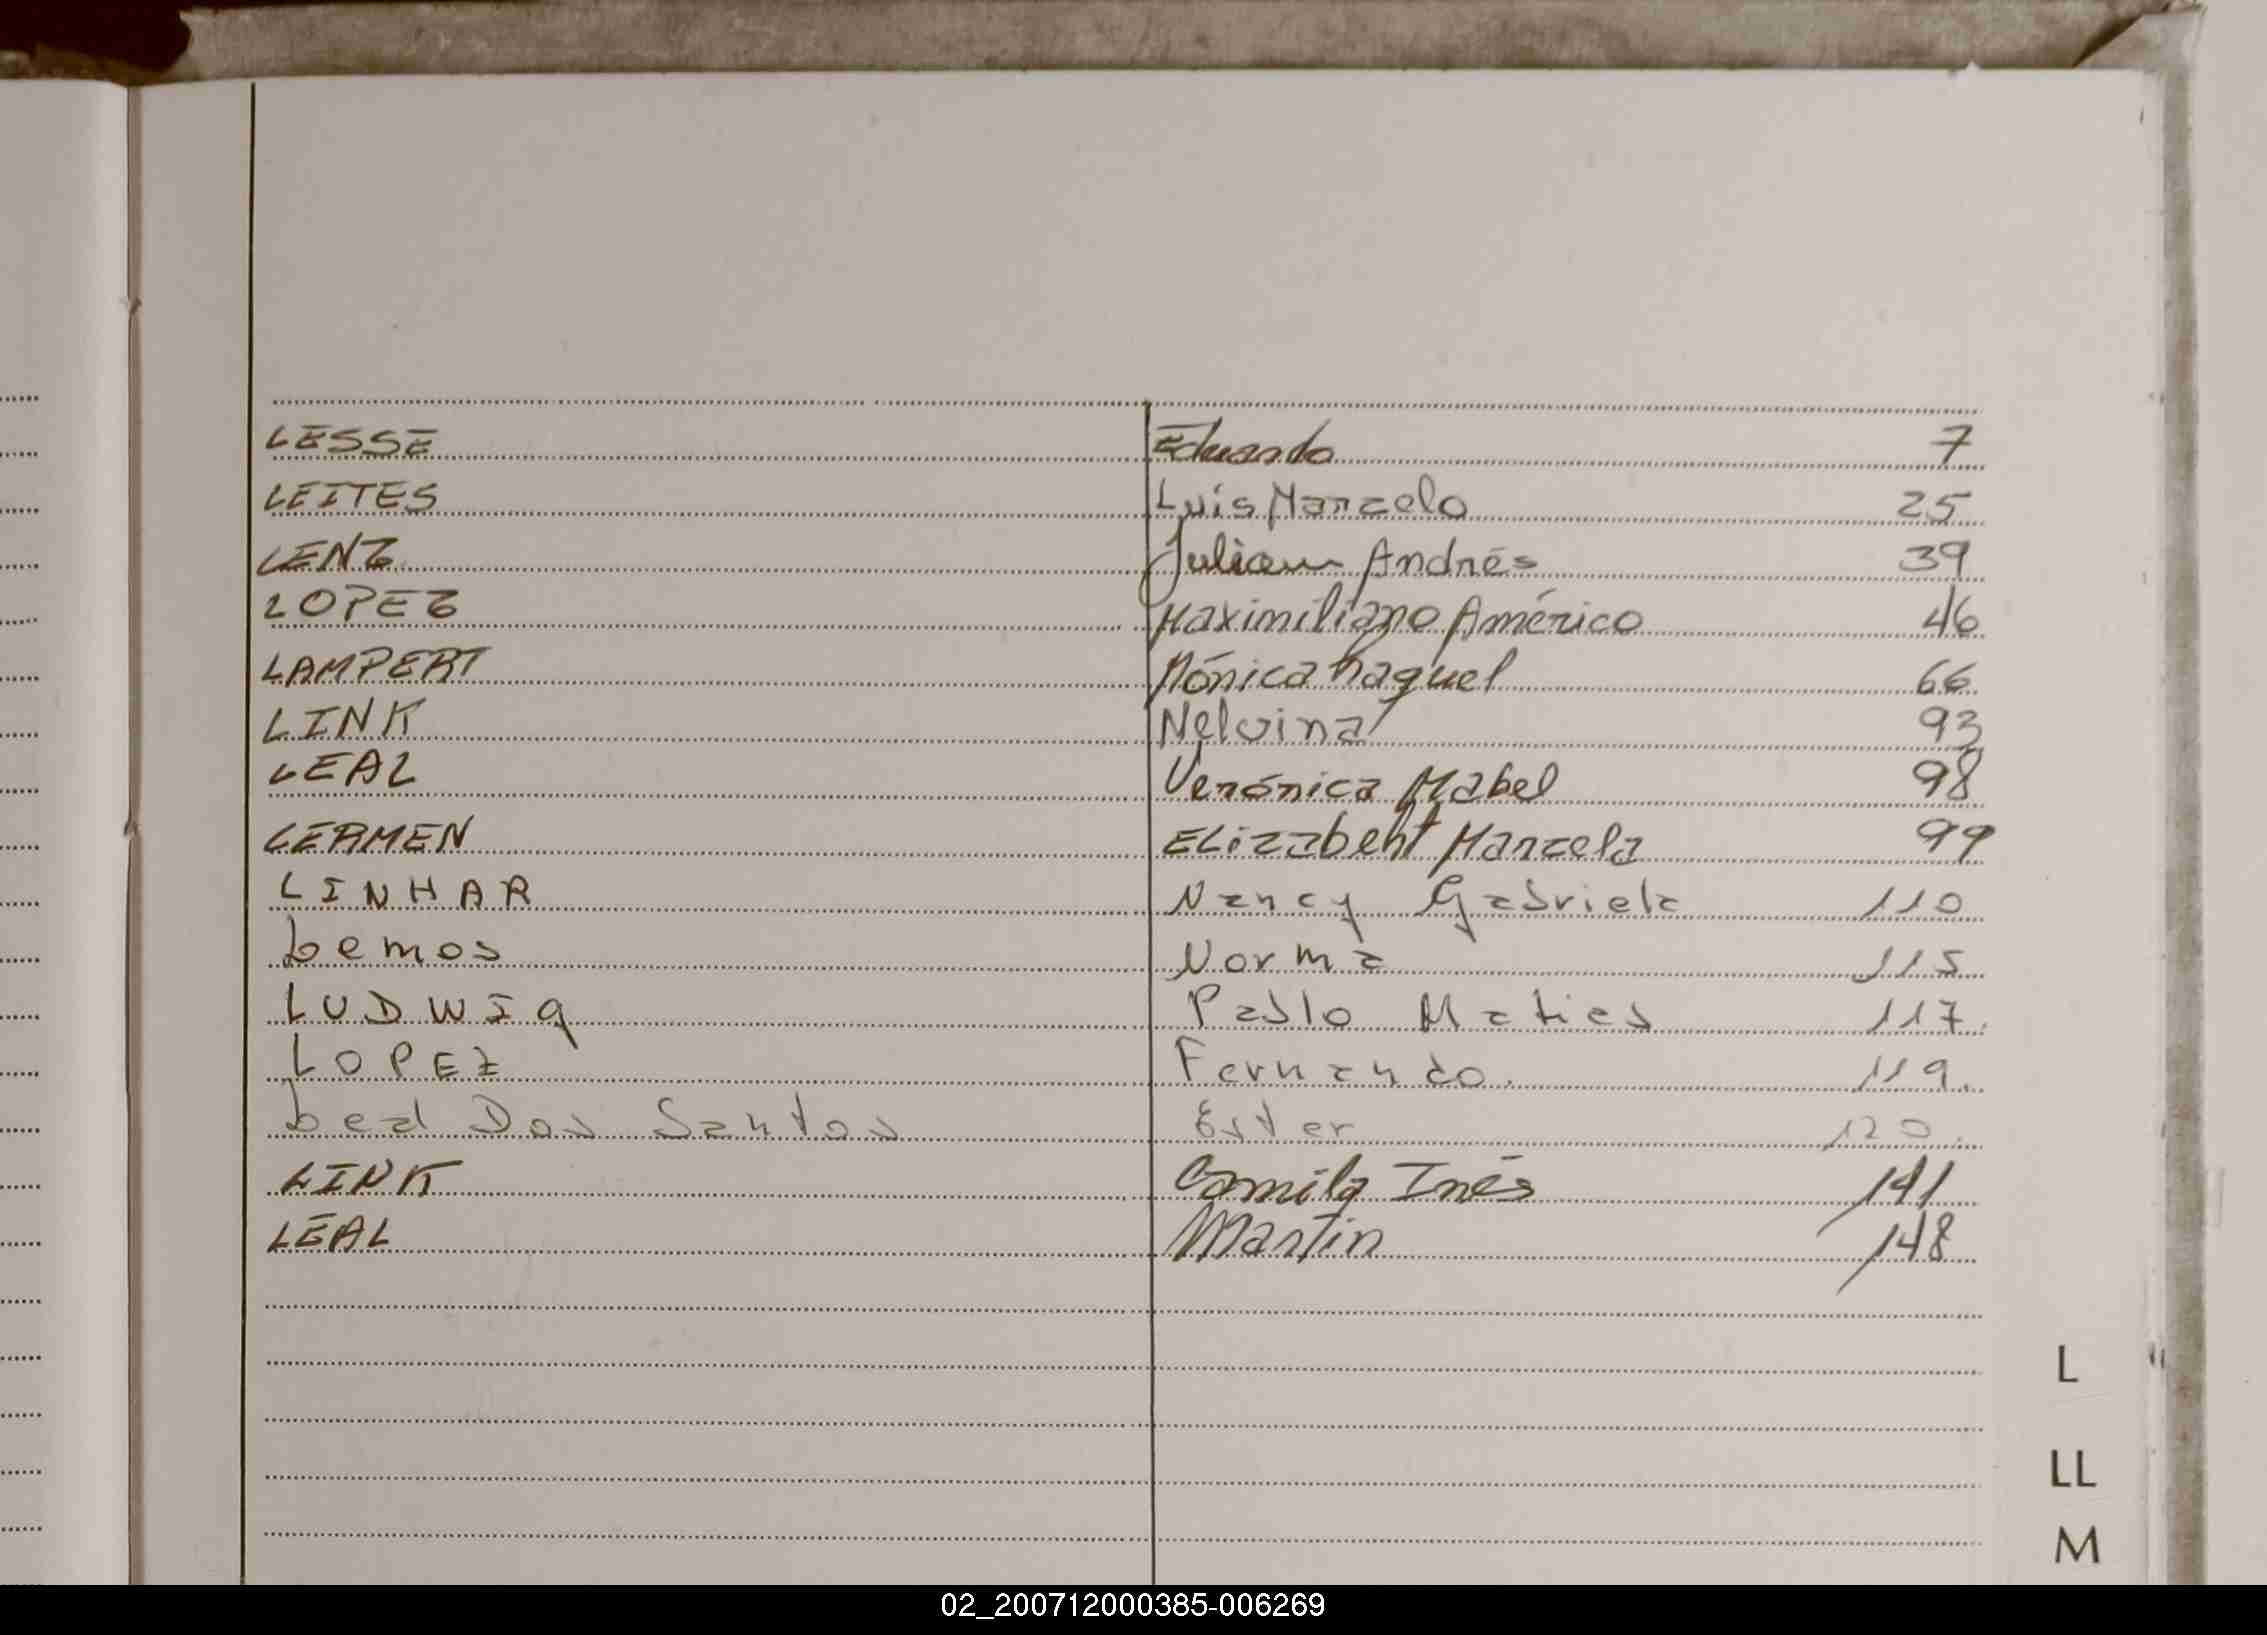 LESSE Eduardo 7
LEITES Luis Marcelo 25
LENZ Julian Andrés 39
LOPEZ Maximiliano Américo 46
LAMPERT Mónica Raquel 66
LINK Nelvina 93
LEAL Verónica Mabel 98
LERMEN ELizabeht Marcela 99
LINHAR Nancy Gabriela 110
Lemos Norma 115
LUDWIg Pablo Matias 117.
LOPEZ Fernando. 119.
Leal Dos Santos Ester 120.
LINK Camila Inés 141
LEAL Martin 148
L
LL
M
02_200712000385-006269